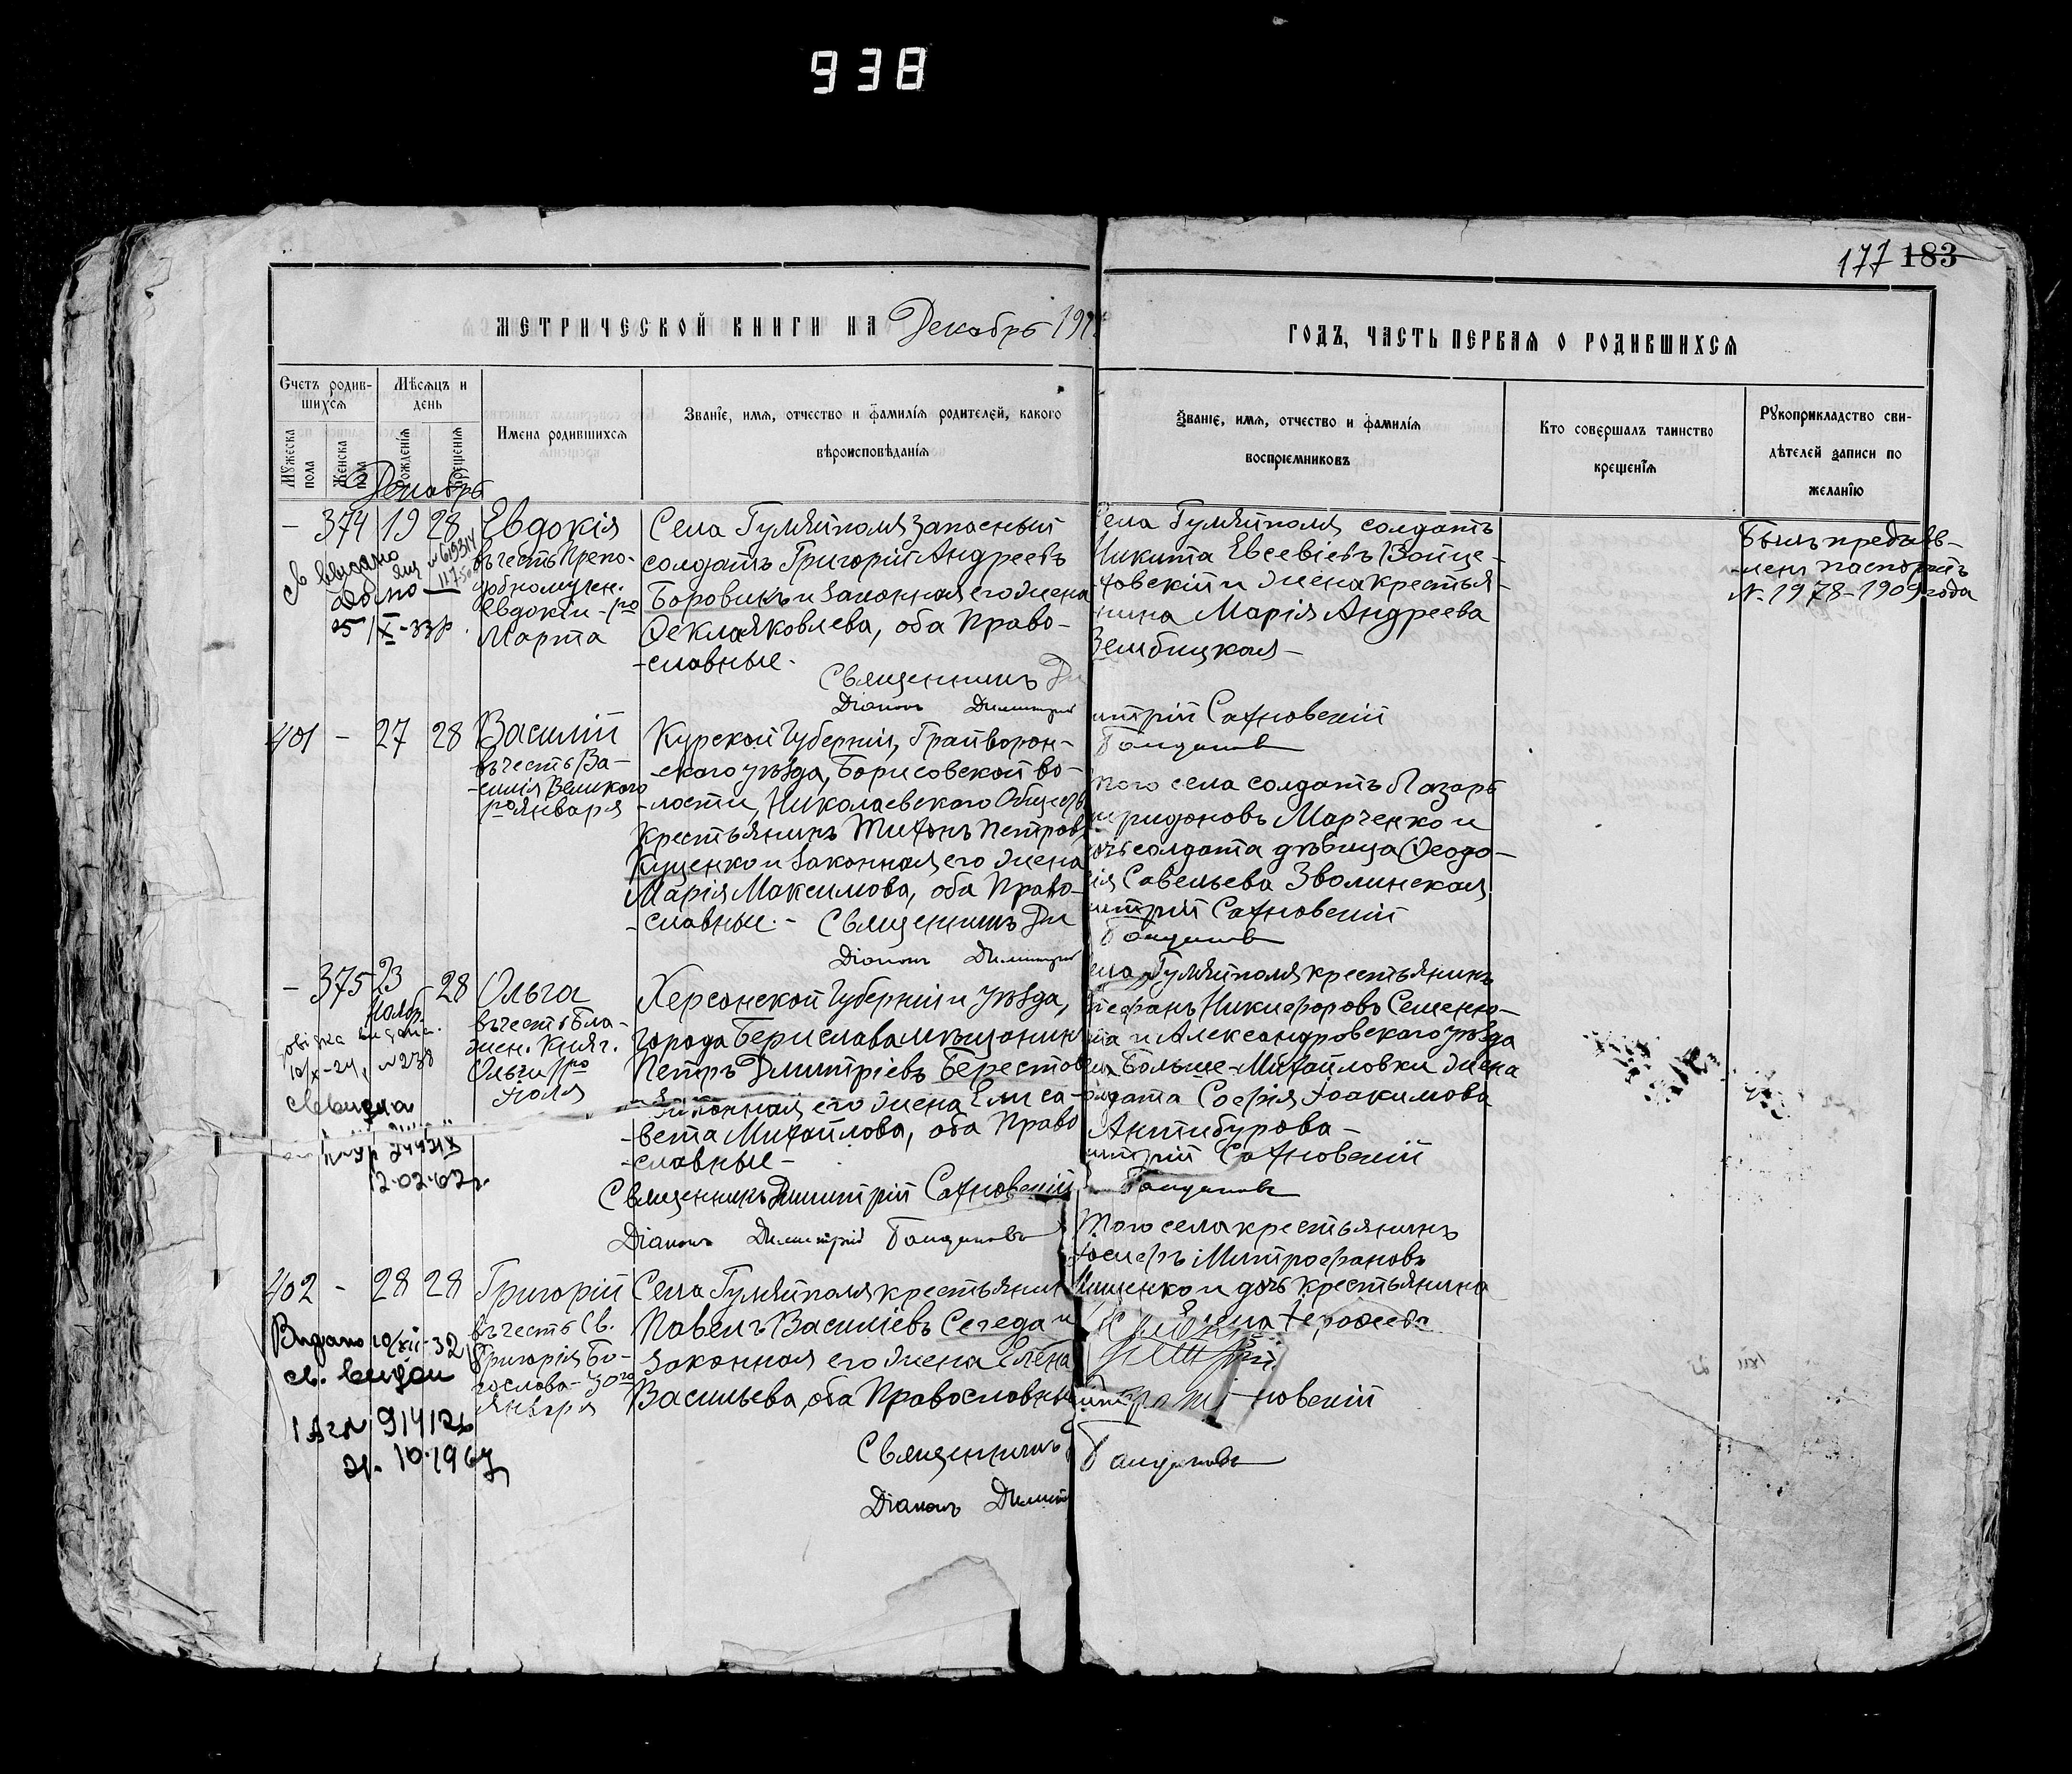 938
177 183
МЕТРИЧЕСКОЙ КНИГИ НА Декабрь 191
ГОДЪ, ЧАСТЬ ПЕРВАЯ О РОДИВШИХСЯ
Счетъ родив-
шихся
Мѣсяцъ и
день
Мужеска
пола
Женска
пола
Рожденія
Крещенія
Имена родившихся
Званіе, имя, отчество и фамилія родителей, какого
вѣроисповѣданія
Званіе, имя, отчество и фамилія
воспріемниковъ
Кто совершалъ таинство
крещенія
Рукоприкладство сви-
дѣтелей записи по
желанію
Декабрь
– 374 19 28
Евдокія
въ честь Препо-
добномучен.
Евдокіи – 1го
Марта
Села Гуляйполя запасный
солдатъ Григорій Андреевъ
Боровикъ и законная его жена
Ѳекла Яковлева, оба Право-
-славные.
Священникъ Ди
Діаконъ Димитрій
Села Гуляйполя солдатъ
Никита Евсевіевъ Войце-
-ховскій и жена крестья-
нина Марія Андреева
Зембицкая –
митрій Сахновскій
Былъ предъяв-
-ленъ паспортъ
№ 1978 – 1909 года
401 – 27 28
Василій
въ честь Ва-
-силія Великого
1го Января
Курской Губерніи, Грайворон-
-скаго уѣзда, Борисовской во-
-лости, Николаевского Обществ
крестьянинъ Тихонъ Петровъ
Куценко и законная его жена
Марія Максимова, оба Право-
-славные. – Священникъ Ди
Діаконъ Димитрій
того села солдатъ Лазарь
Спиридоновъ Марченко и
дочь солдата дѣвица Ѳеодо-
сія Савельева Зволинская
митрій Сахновскій
– 375 23 28
Ноябр.
Ольга
въ честь Бла-
жен. Княг.
Ольги 11го
Іюля
10/X-24, №238
12.02.62г.
Херсонской Губерніи и уѣзда,
города Берислава мѣщанинъ
Петръ Дмитріевъ Берестов
законная его жена Елиса-
-вета Михайлова, оба Право
-славные –
Священникъ Димитрій Сахновскій
Діаконъ Димитрій
Села Гуляйполя крестьянинъ
Стефанъ Никифоровъ Семеню-
та и Александровского уѣзда
села Больше-Михайловки жена
солдата Софія Іоакимова
Антибурова –
митрій Сахновскій
402 – 28 28
Григорій
въ честь Св.
Григорія Бо-
гослова – 30го
Января
Видано 10/XII-32
св. видан
Села Гуляйполя крестьянин
Павелъ Василіевъ Сегеда и
законная его жена Елена
Васильева, оба Православны
Священникъ
Діаконъ Димит
того села крестьянинъ
Іосифъ Митрофановъ
Мищенко и дочь крестьянина
новскій